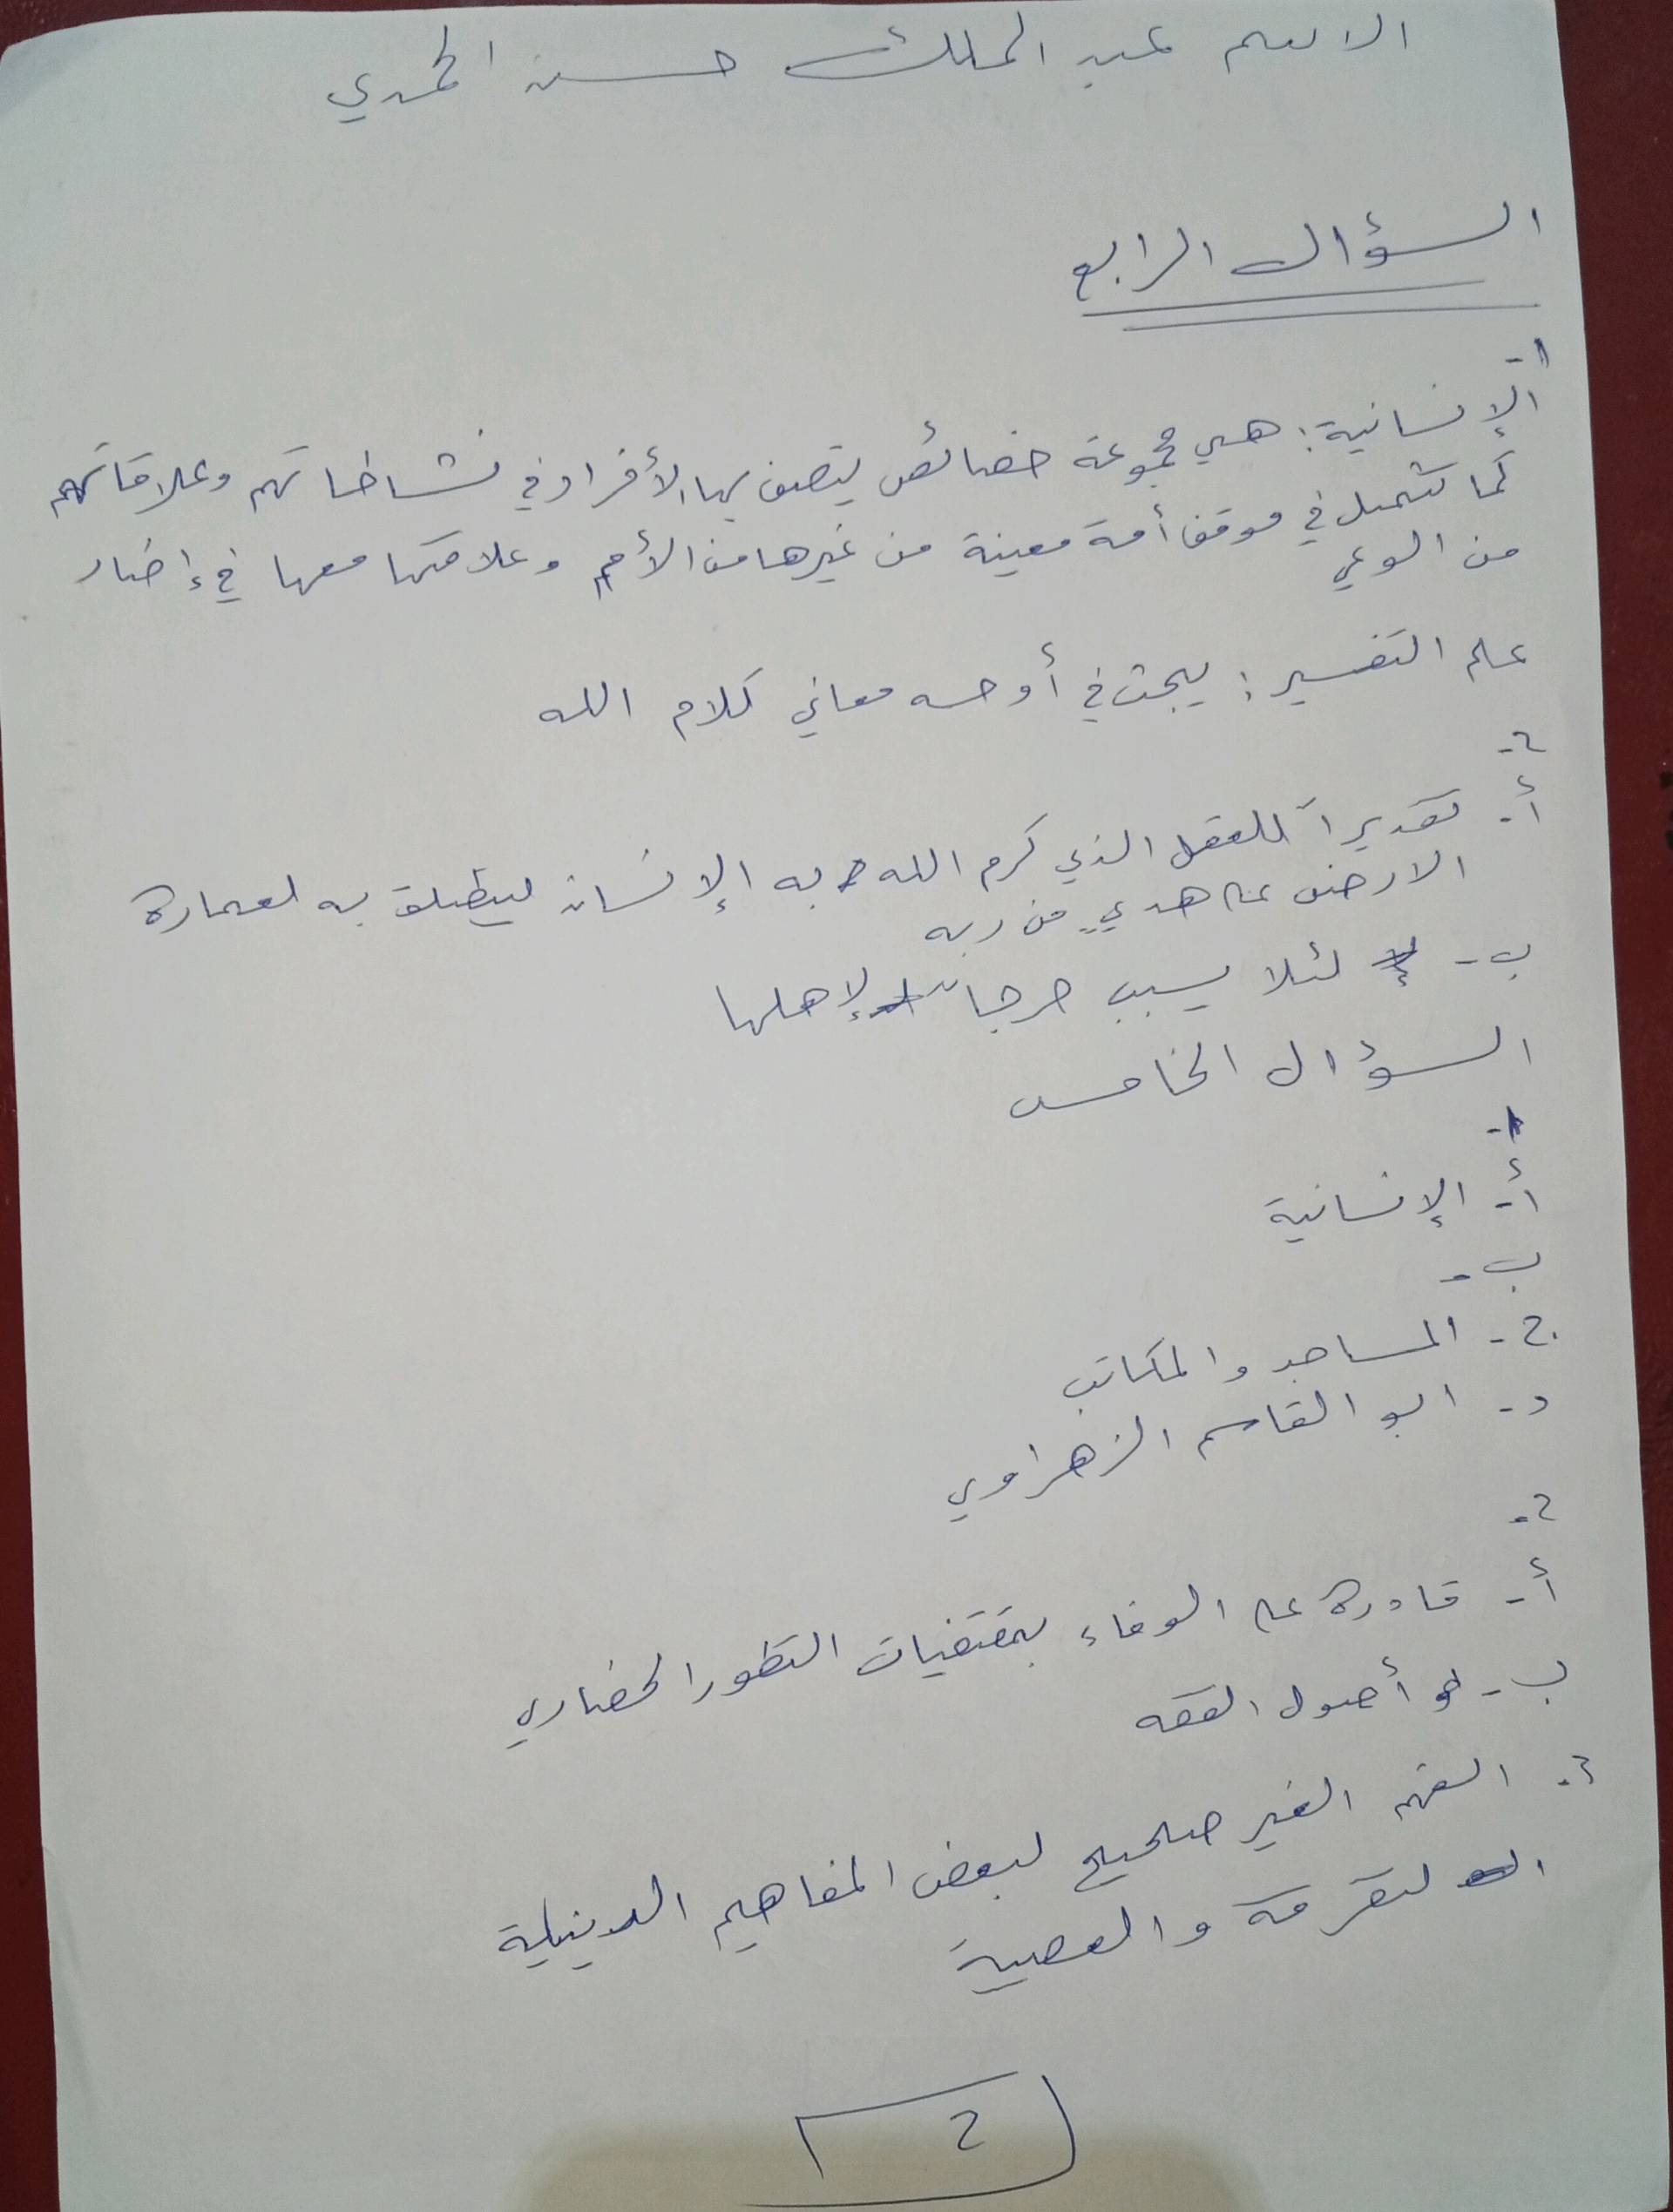 الاسم عبد الملك حسن الحمدي
السؤال الرابع
١-
الإنسانية: هي مجموعة خصائص يتصف بها الأفراد في نشاطاتهم وعلاقاتهم
كما تتمثل في موقف أمة معينة من غيرها من الأمم وعلاقتها معها في إطار
من الوعي
علم التفسير: يبحث في أوجه معاني كلام الله
٢-
أ- تقديراً للعقل الذي كرم الله به الإنسان لينطلق به لعمارة
الارض على هدي من ربه
ب- لئلا يسبب حرجا لإهلها
السؤال الخامس
١-
أ- الإنسانية
ب-
ج- المساجد والمكاتب
د- ابو القاسم الزهراوي
٢-
أ- قادرة على الوفاء بمقتضيات التطور الحضاري
ب- أصول الفقه
٣- الفهم الغير صحيح لبعض المفاهيم الدينية
التفرقة والعصبية
٢